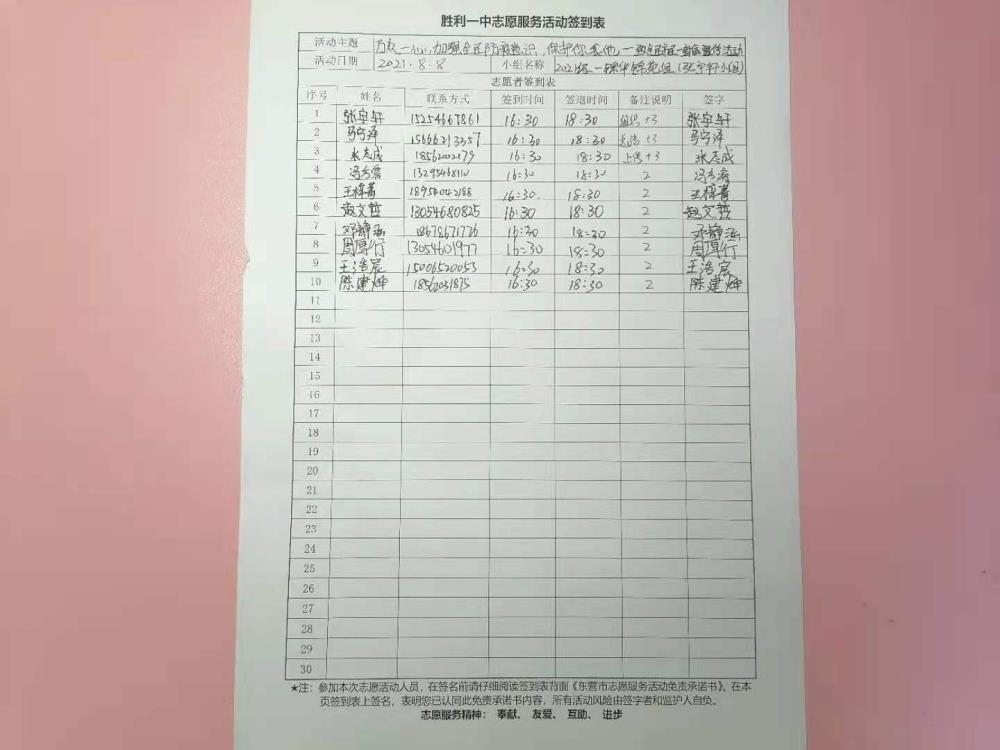 胜利一中志愿服务活动签到表
活动主题 万众一心,加强全民防疫意识,保护你我他,
活动日期 2021.8.8 小组名称 2021级
志愿者签到表
序号 姓名 联系方式 签到时间 签退时间 备注说明 签字
1 张宇轩 15254667861 16:30 18:30 组织+3 张宇轩
2 马宁泽 15666213357 16:30 18:30 总结+3 马宁泽
3 张志成 18562002179 16:30 18:30 上传+3 张志成
4 13295468110 16:30 18:30 2
5 王梓菁 18954042188 16:30 18:30 2 王梓菁
6 赵文哲 13054680825 16:30 18:30 2 赵文哲
7 邓静涵 18678671726 16:30 18:30 2 邓静涵
8 周厚行 13054601977 16:30 18:30 2 周厚行
9 王浩宸 15006520053 16:30 18:30 2 王浩宸
10 陈建烨 18562031875 16:30 18:30 2 陈建烨
11
12
13
14
15
16
17
18
19
20
21
22
23
24
25
26
27
28
29
30
★注: 参加本次志愿活动人员,在签名前请仔细阅读签到表背面《东营市志愿服务活动免责承诺书》。在本
页签到表上签名,表明您已认同此免责承诺书内容,所有活动风险由签字者和监护人自负。
志愿服务精神: 奉献、 友爱、 互助、 进步